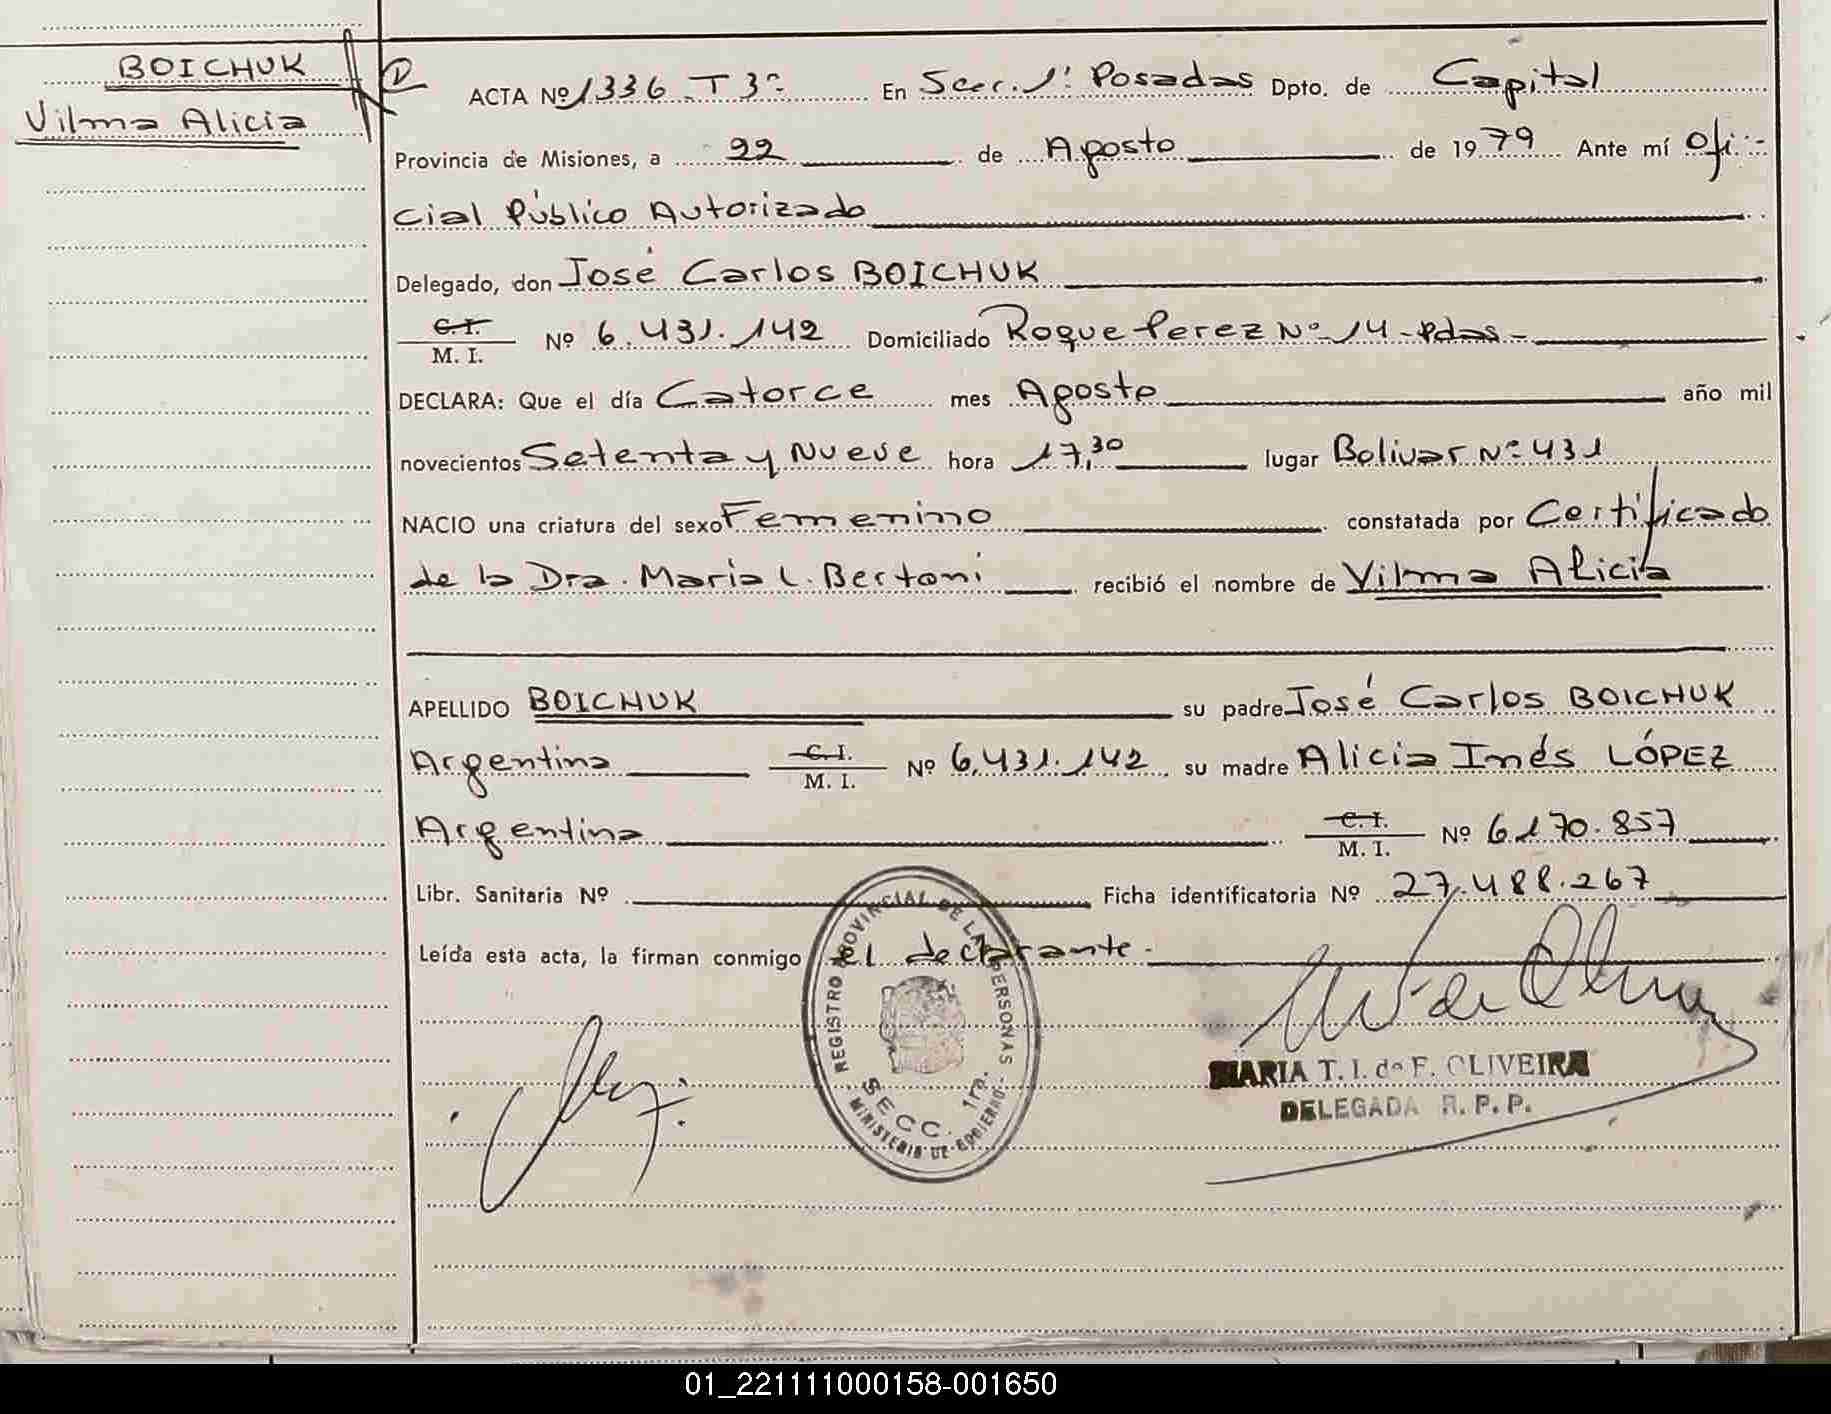 BOICHUK
Vilma Alicia
ACTA Nº 1336 T 3º En Secc. 1ª Posadas Dpto. de Capital
Provincia de Misiones, a 22 de Agosto de 1979 Ante mí Ofi-
cial Público Autorizado
Delegado, don José Carlos BOICHUK
C. I.
M. I. Nº 6.431.142 Domiciliado Roque Perez Nº 14 - Pdas -
DECLARA: Que el día Catorce mes Agosto año mil
novecientos Setenta y Nueve hora 17,30 lugar Bolivar Nº 431
NACIO una criatura del sexo Femenino constatada por Certificado
de la Dra. Maria L. Bertoni recibió el nombre de Vilma Alicia
APELLIDO BOICHUK su padre José Carlos BOICHUK
Argentina C. I. M. I. Nº 6.431.142 su madre Alicia Inés LÓPEZ
Argentina C. I. M. I. Nº 6170.857
Libr. Sanitaria Nº Ficha identificatoria Nº 27.488.267
Leída esta acta, la firman conmigo el declarante.-
REGISTRO PROVINCIAL DE LAS PERSONAS
SECC. 1ra.
MINISTERIO DE GOBIERNO
MARIA T. I. de F. OLIVEIRA
DELEGADA R. P. P.
01_221111000158-001650